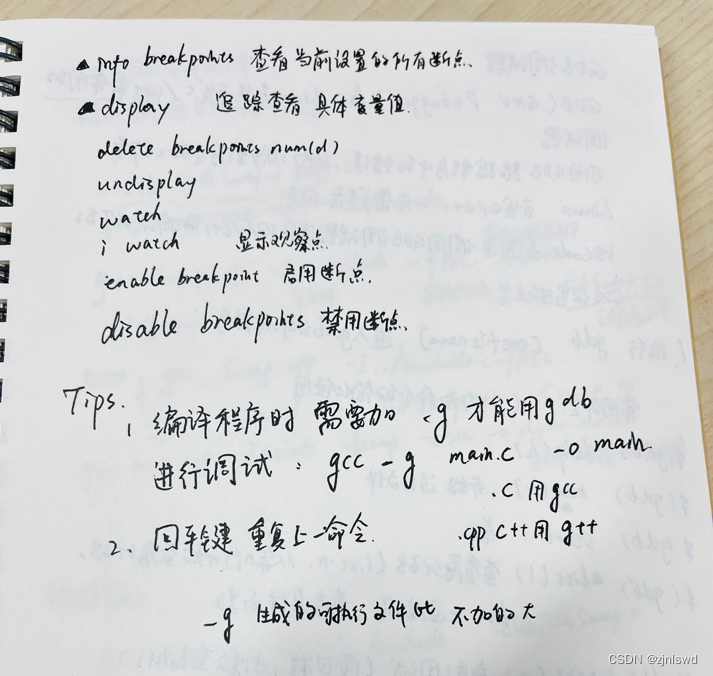 ▲ info breakpoints 查看当前设置的所有断点.
▲ display 追踪查看具体变量值.
delete breakpoints num(d)
undisplay
watch
i watch 显示观察点
enable breakpoint 启用断点.
disable breakpoints 禁用断点.
Tips.
1 编译程序时 需要加 -g 才能用gdb
进行调试: gcc -g main.c -o main.
.c 用gcc
2、回车键 重复上一命令. .cpp c++用 g++
-g 生成的可执行文件比 不加的大
CSDN @zjnlswd